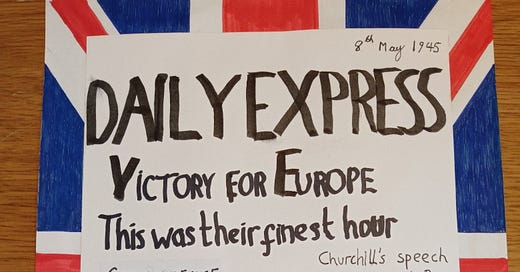 8th May 1945
DAILY EXPRESS
VICTORY FOR EUROPE
This was their finest hour
Churchill's speech